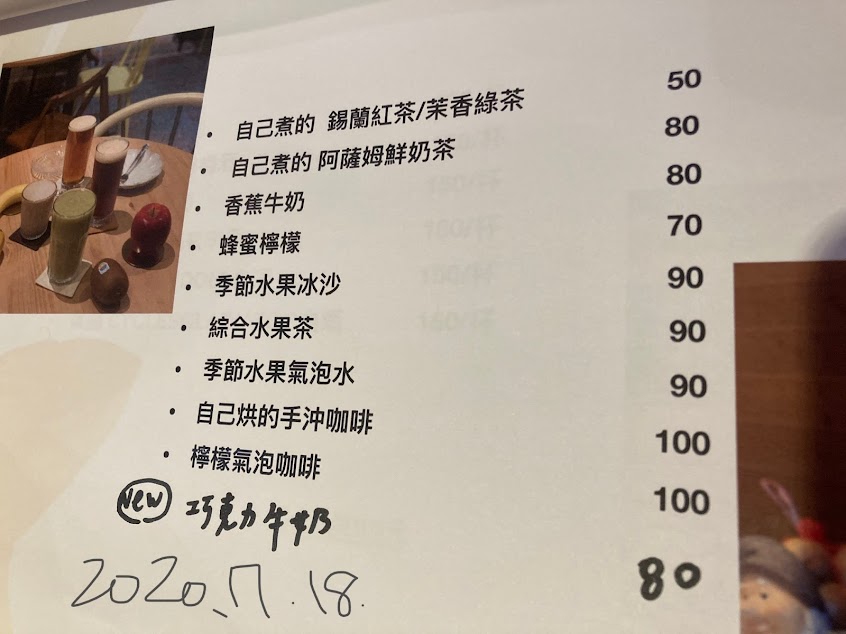 自己煮的 錫蘭紅茶/茉香綠茶 50
自己煮的 阿薩姆鮮奶茶 80
香蕉牛奶 80
蜂蜜檸檬 70
季節水果冰沙 90
綜合水果茶 90
季節水果氣泡水 90
自己烘的手沖咖啡 100
檸檬氣泡咖啡 100
New 巧克力牛奶 80
2020.7.18.